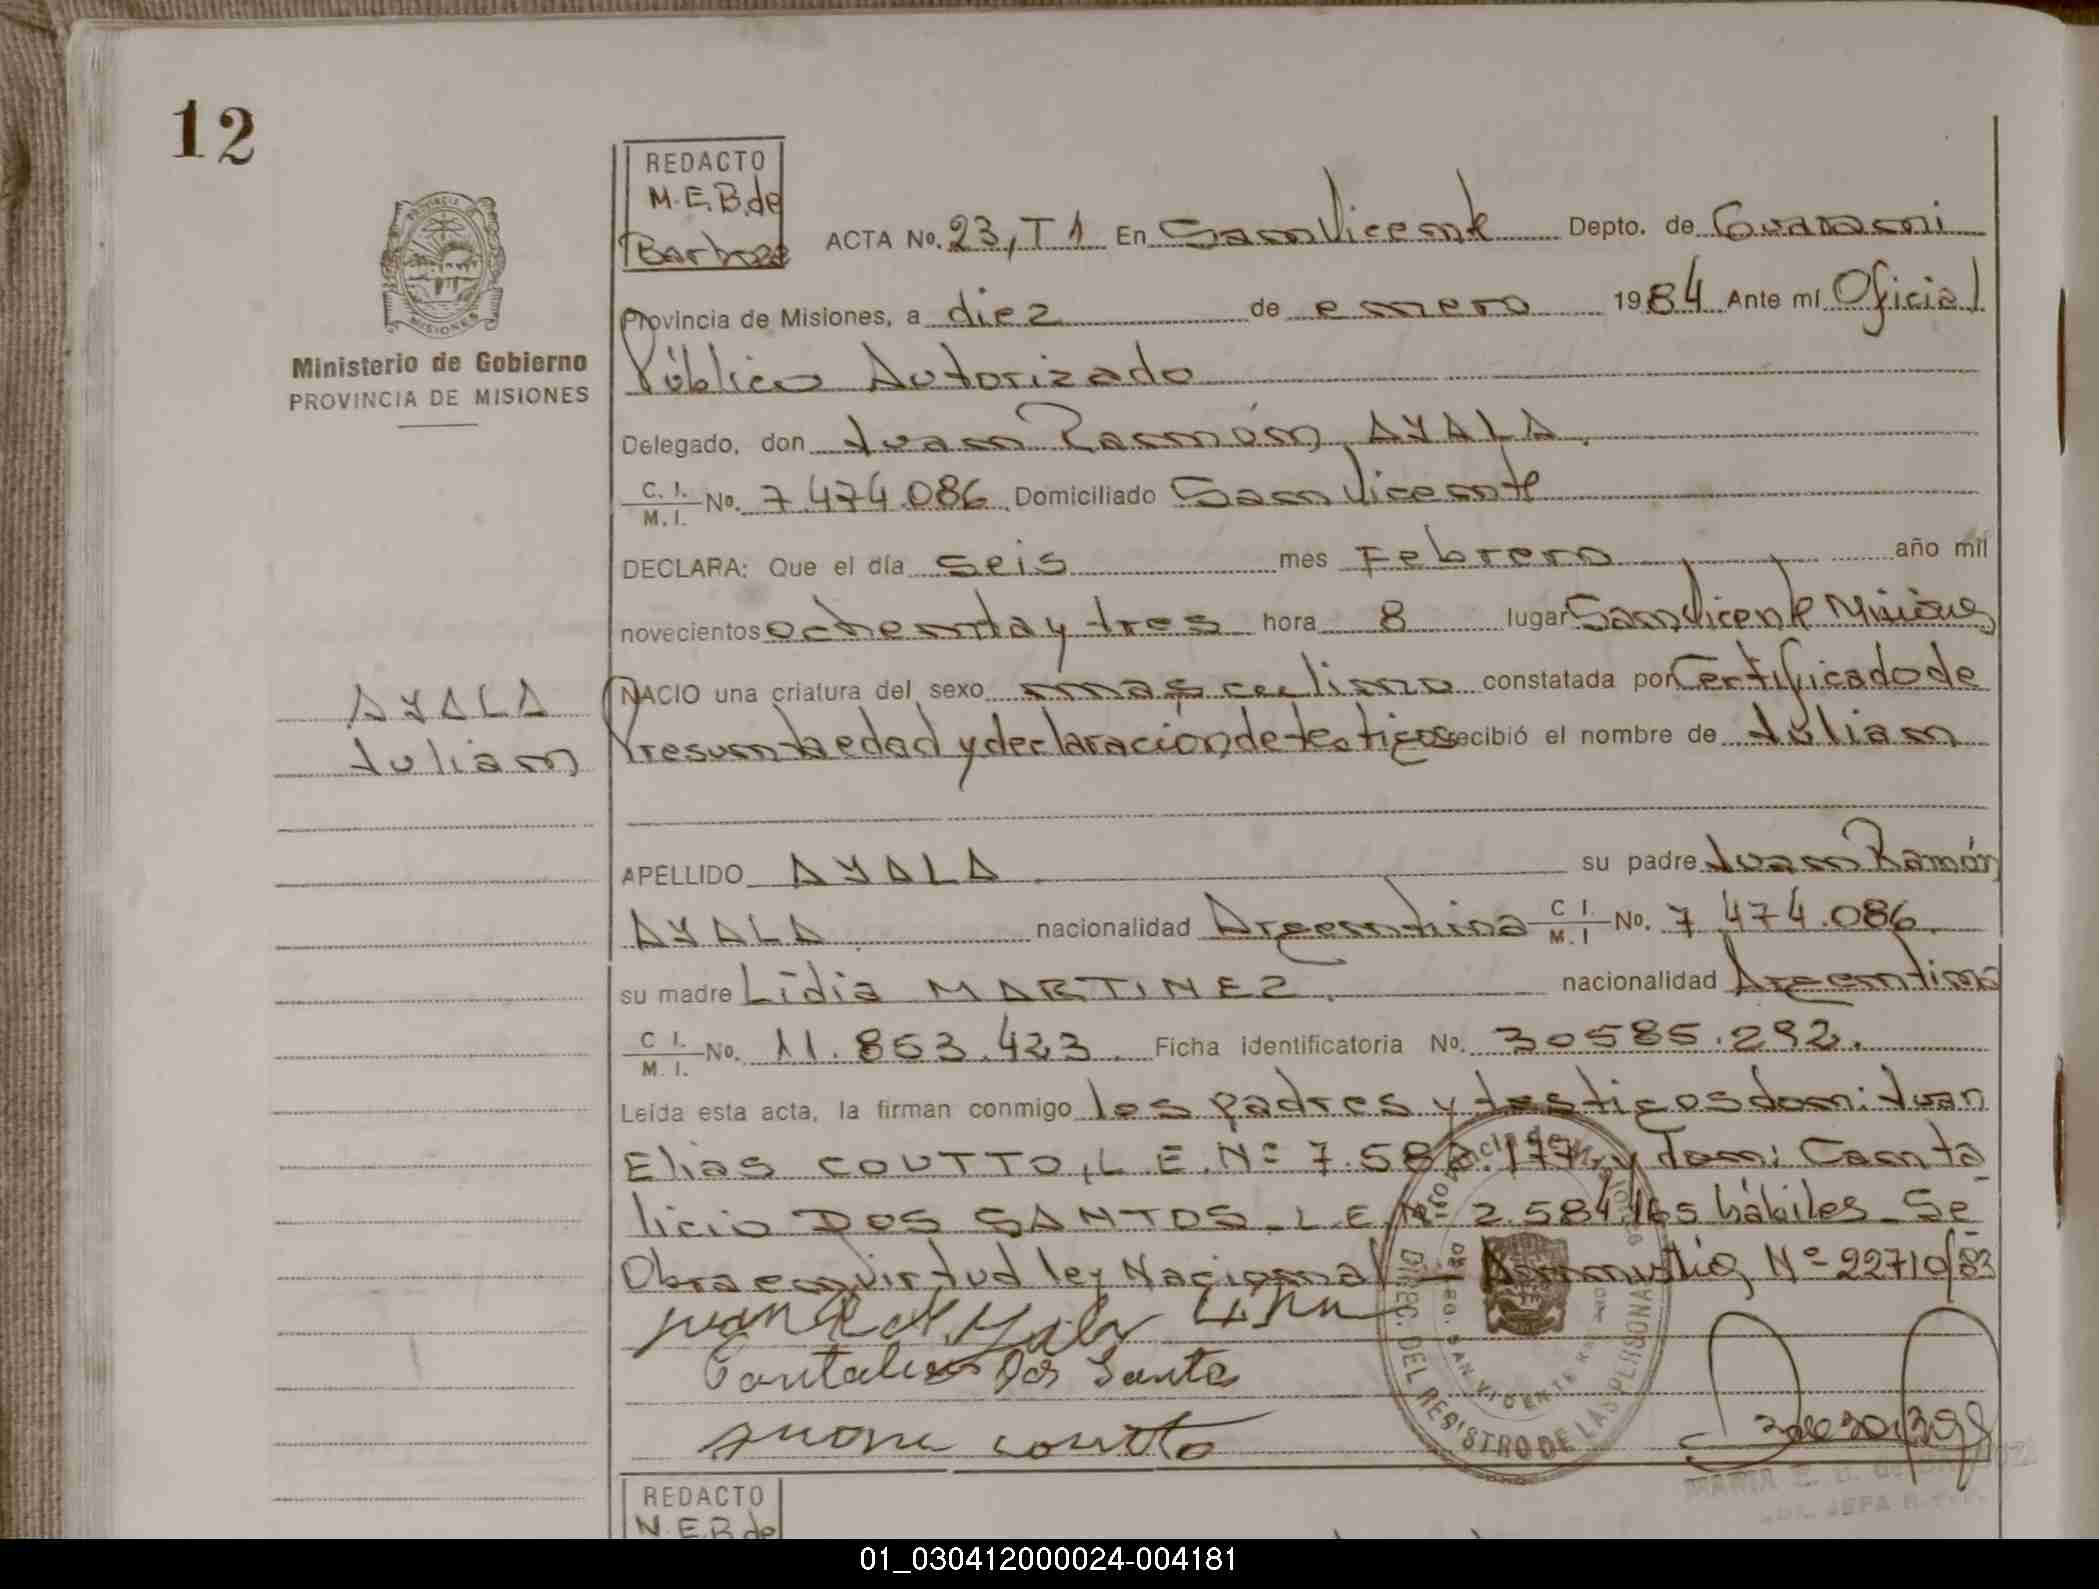 12
REDACTO
M.E.B. de
Barboza
ACTA No. 23, T1 En San Vicente Depto. de Guaraní
Provincia de Misiones, a diez de enero 1984 Ante mí Oficial
Público Autorizado
Ministerio de Gobierno
PROVINCIA DE MISIONES
Delegado, don Juan Ramón AYALA.
C. I. / M. I. No. 7.474.086. Domiciliado San Vicente
DECLARA: Que el día seis mes Febrero año mil
novecientos ochenta y tres hora 8 lugar San Vicente Misiones
NACIO una criatura del sexo masculino constatada por Certificado de
AYALA
Julián
Presunta edad y declaración de testigos recibió el nombre de Julián
APELLIDO AYALA su padre Juan Ramón
AYALA nacionalidad Argentina C I. / M. I No. 7.474.086.
su madre Lidia MARTINEZ. nacionalidad Argentina
C I. / M. I. No. 11.853.423. Ficha identificatoria No. 30585.292.
Leída esta acta, la firman conmigo los padres y testigos don: Juan
Elias COUTTO, L.E. Nº 7.58 .177, y don: Canta
licio DOS SANTOS. L.E. Nº 2.584.165 hábiles. Se
Obra en virtud ley Nacional Amnistia Nº 22710/83
Juan R A. Yala
Cantalicio Dos Santo
Juan coutto
DIREC. DEL REGISTRO DE LAS PERSONAS
Provincia de Misiones
SAN VICENTE
MARIA E. B. de
JEFA
REDACTO
M.E.B. de
01_030412000024-004181